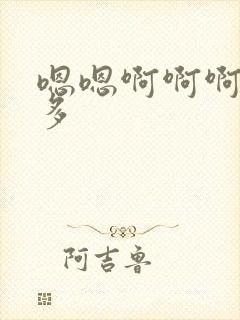 嗯嗯啊啊啊
多
阿吉鲁